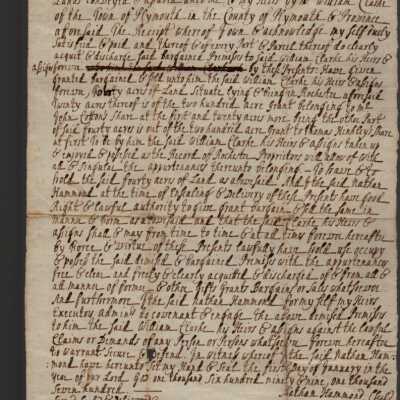 of the Town of Plymouth in the County of Plymouth & Province
aforesaid The Receipt whereof I own & acknowledge my self fully
Satisfied & paid and Thereof & of every Part & Parcel thereof do clearly
acquit & discharge said Bargained Premises to said William Clarke his Heirs &
assigns forever by these Presents: Have Given
granted Bargained & Sold unto him the said William Clarke his Heirs & assigns
forever Forty acres of Land Situate lying & being in Rochester aforesaid
Twenty acres thereof is of the two hundred acre Grant belonging to me
John Cottons Share at the first and twenty acres more being the other Part
of said fourty acres is out of the two hundred acre Grant to Thomas Hinkleys Share
at first To be by him the said William Clarke his Heirs & assigns taken up
& enjoyed & possessed as the Record of Rochester Proprietors will allow of with
all & Singular the appurtenances thereunto belonging To Have & to
hold the said fourty acres of Land as aforesaid And I the said Nathan
Hammond at the time of Ensealing & Delivery of these Presents have Good
Right & lawful authority to give grant bargain & sell the same in
manner & form as aforesaid and that the said Clarke his Heirs &
assigns shall & may from time to time & at all times forever hereafter
by force & virtue of these Presents lawfully have hold use occupy
& possess the said demised & Bargained Premises with the appurtenances
free & clear and freely & clearly acquited & discharged of & from all &
all manner of former & other Gifts Grants Bargains or Sales whatsoever
And furthermore I the said Nathan Hammond for my self my Heirs
Executors admins to covenant & engage the above demised Premises
to him the said William Clarke his Heirs & assigns against the lawful
Claims or Demands of any Person or Persons whatsoever forever hereafter
to Warrant Secure & Defend. In witness whereof I the said Nathan Ham-
mond have hereunto set my Hand & Seal the first Day of January in the
year of our Lord God one thousand Six hundred ninety & nine one thousand
Seven hundred Nathan Hammond